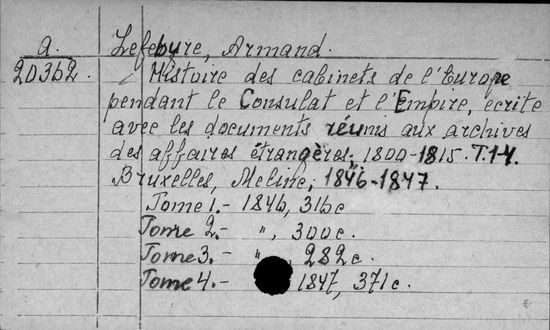 a. Lefebvre, Armand.
20362. Histoire des cabinets de l'Europe
pendant le Consulat et l'Empire, écrite
avec les documents réunis aux archives
des affaires étrangères; 1800-1815. T.1-4.
Bruxelles, Meline, 1846-1847.
Tome 1.- 1846, 316c
Tome 2.- ", 300c.
Tome 3.- ", 282c.
Tome 4.- 1847, 371c.